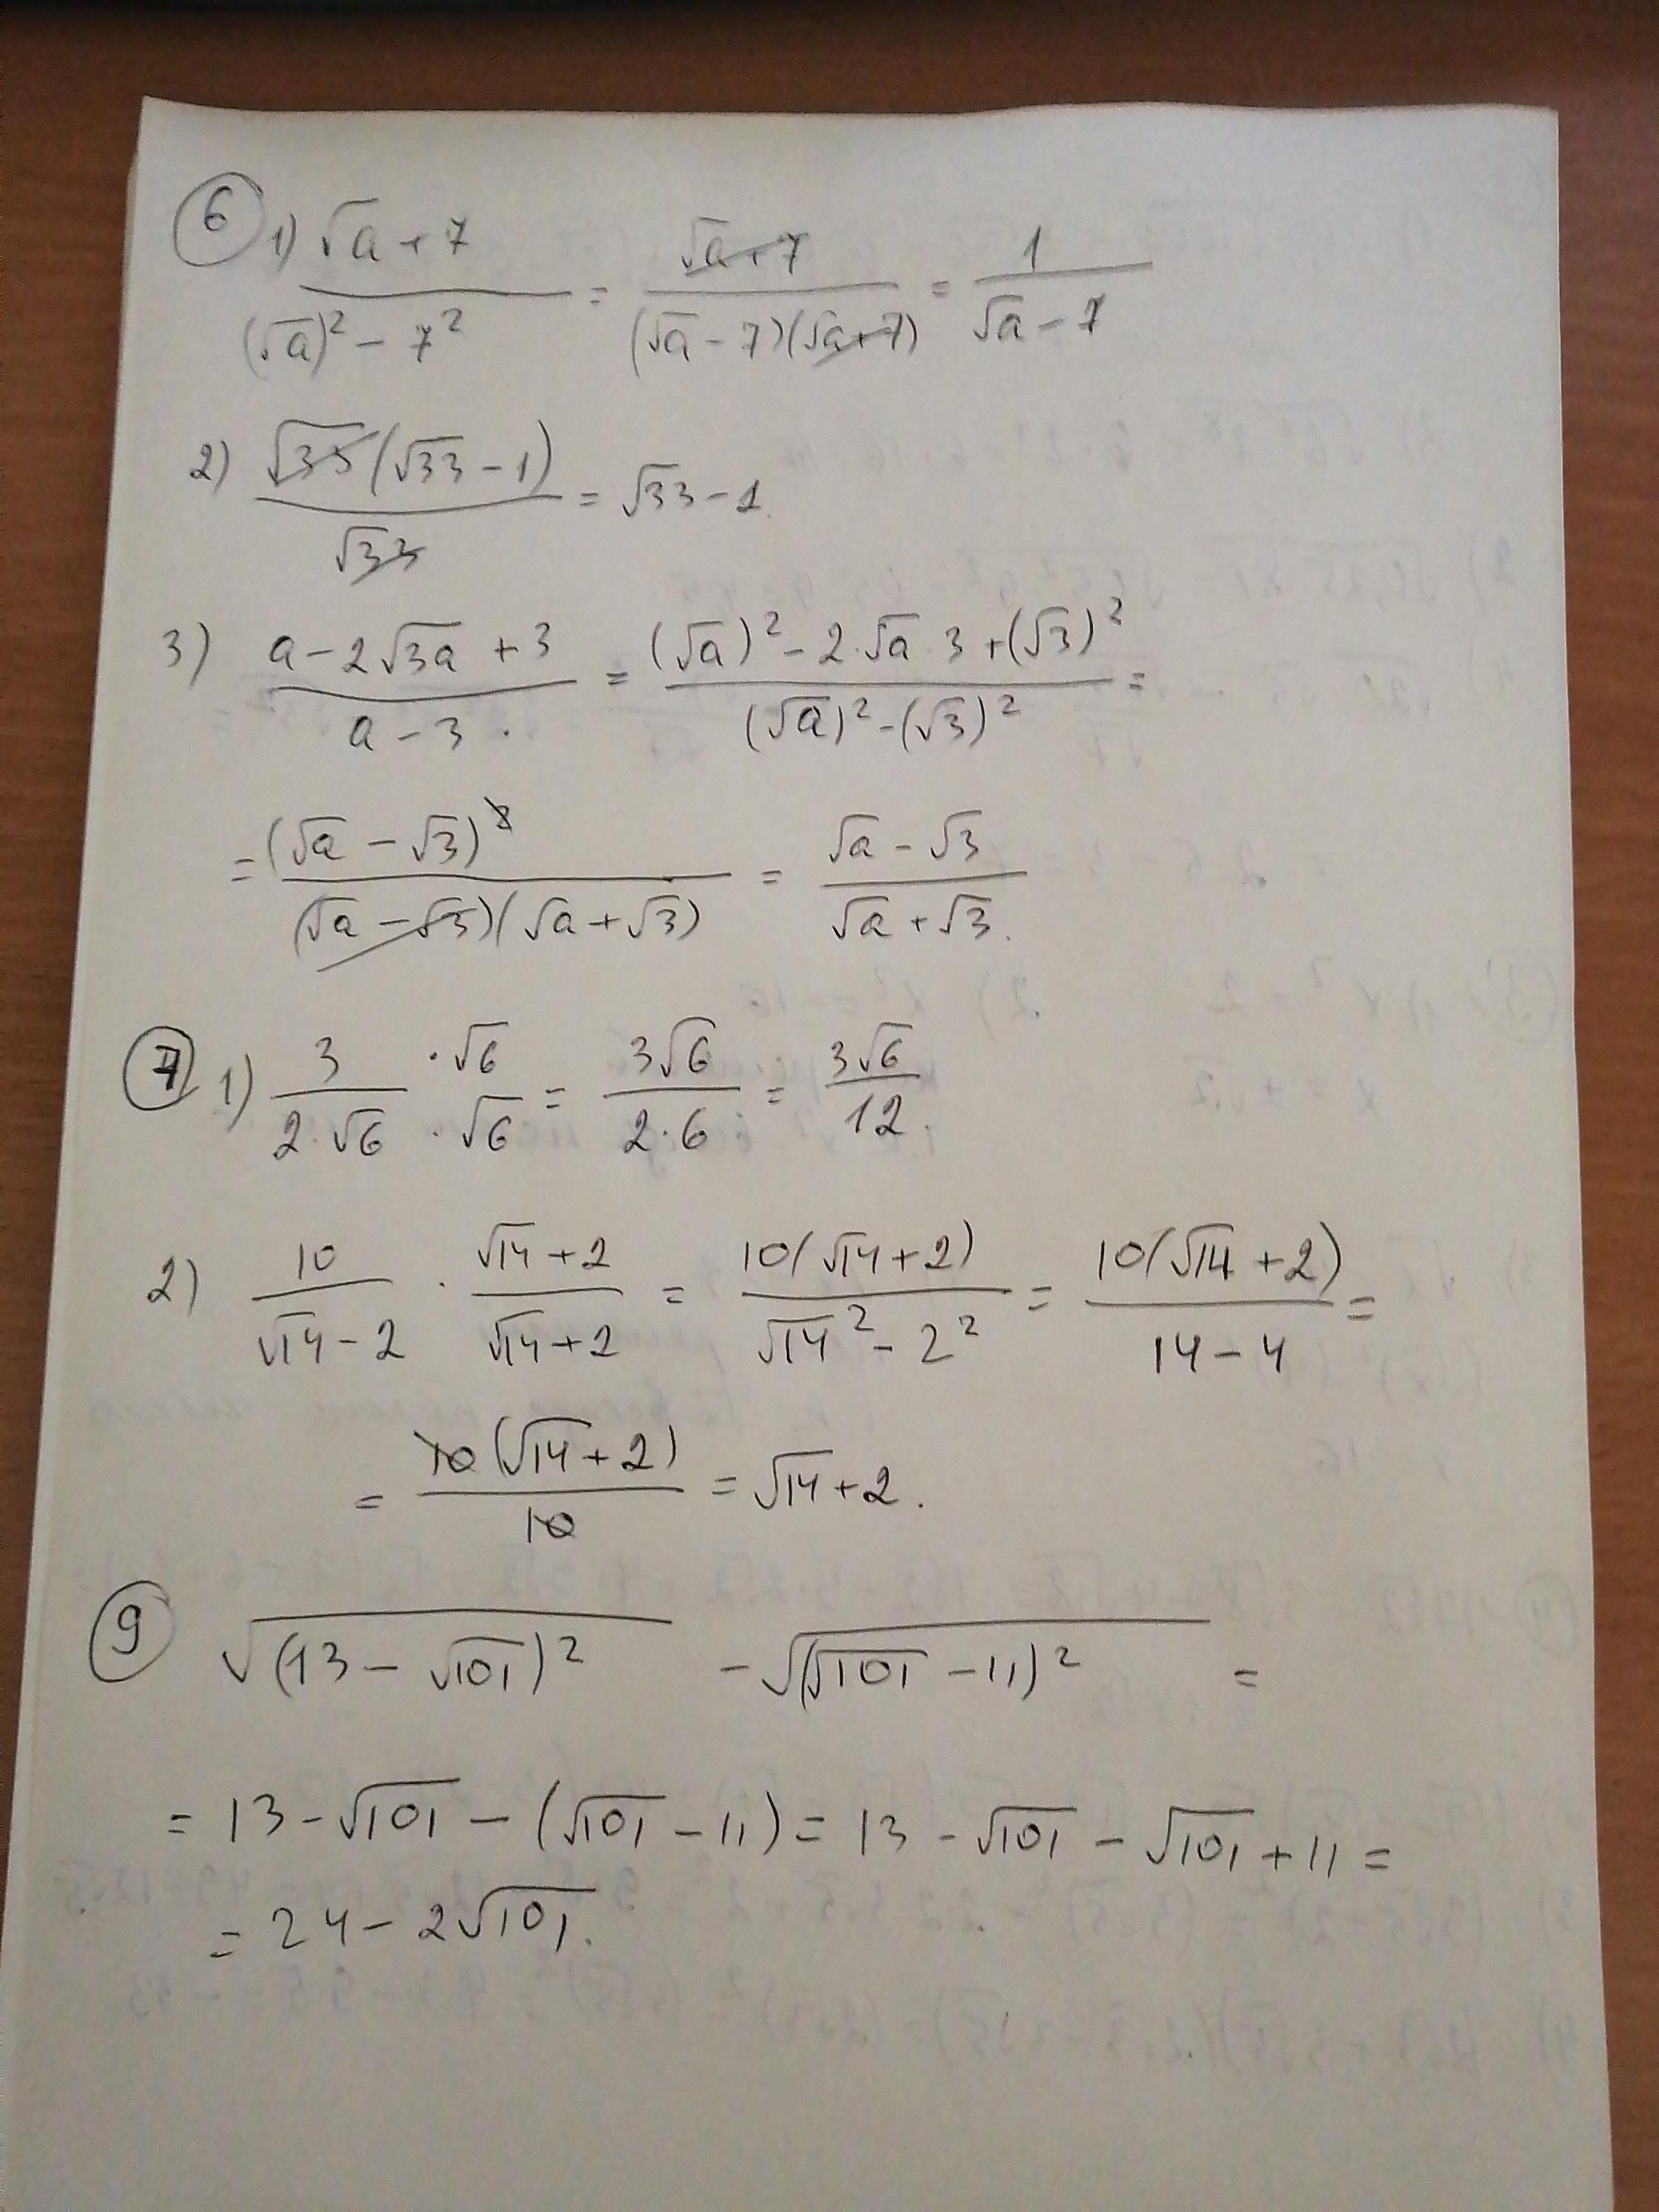 6 1) (√a + 7)/((√a)² − 7²) = (√a + 7)/((√a − 7)(√a + 7)) = 1/(√a − 7)
2) √33(√33 − 1)/√33 = √33 − 1.
3) (a − 2√3a + 3)/(a − 3) = ((√a)² − 2·√a·3 + (√3)²)/((√a)² − (√3)²) =
= (√a − √3)²/((√a − √3)(√a + √3)) = (√a − √3)/(√a + √3).
7 1) 3/(2·√6) ·√6/·√6 = 3√6/(2·6) = 3√6/12.
2) 10/(√14 − 2) · (√14 + 2)/(√14 + 2) = 10(√14 + 2)/(√14² − 2²) = 10(√14 + 2)/(14 − 4) =
= 10(√14 + 2)/10 = √14 + 2.
9 √(13 − √101)² − √(√101 − 11)² =
= 13 − √101 − (√101 − 11) = 13 − √101 − √101 + 11 =
= 24 − 2√101.